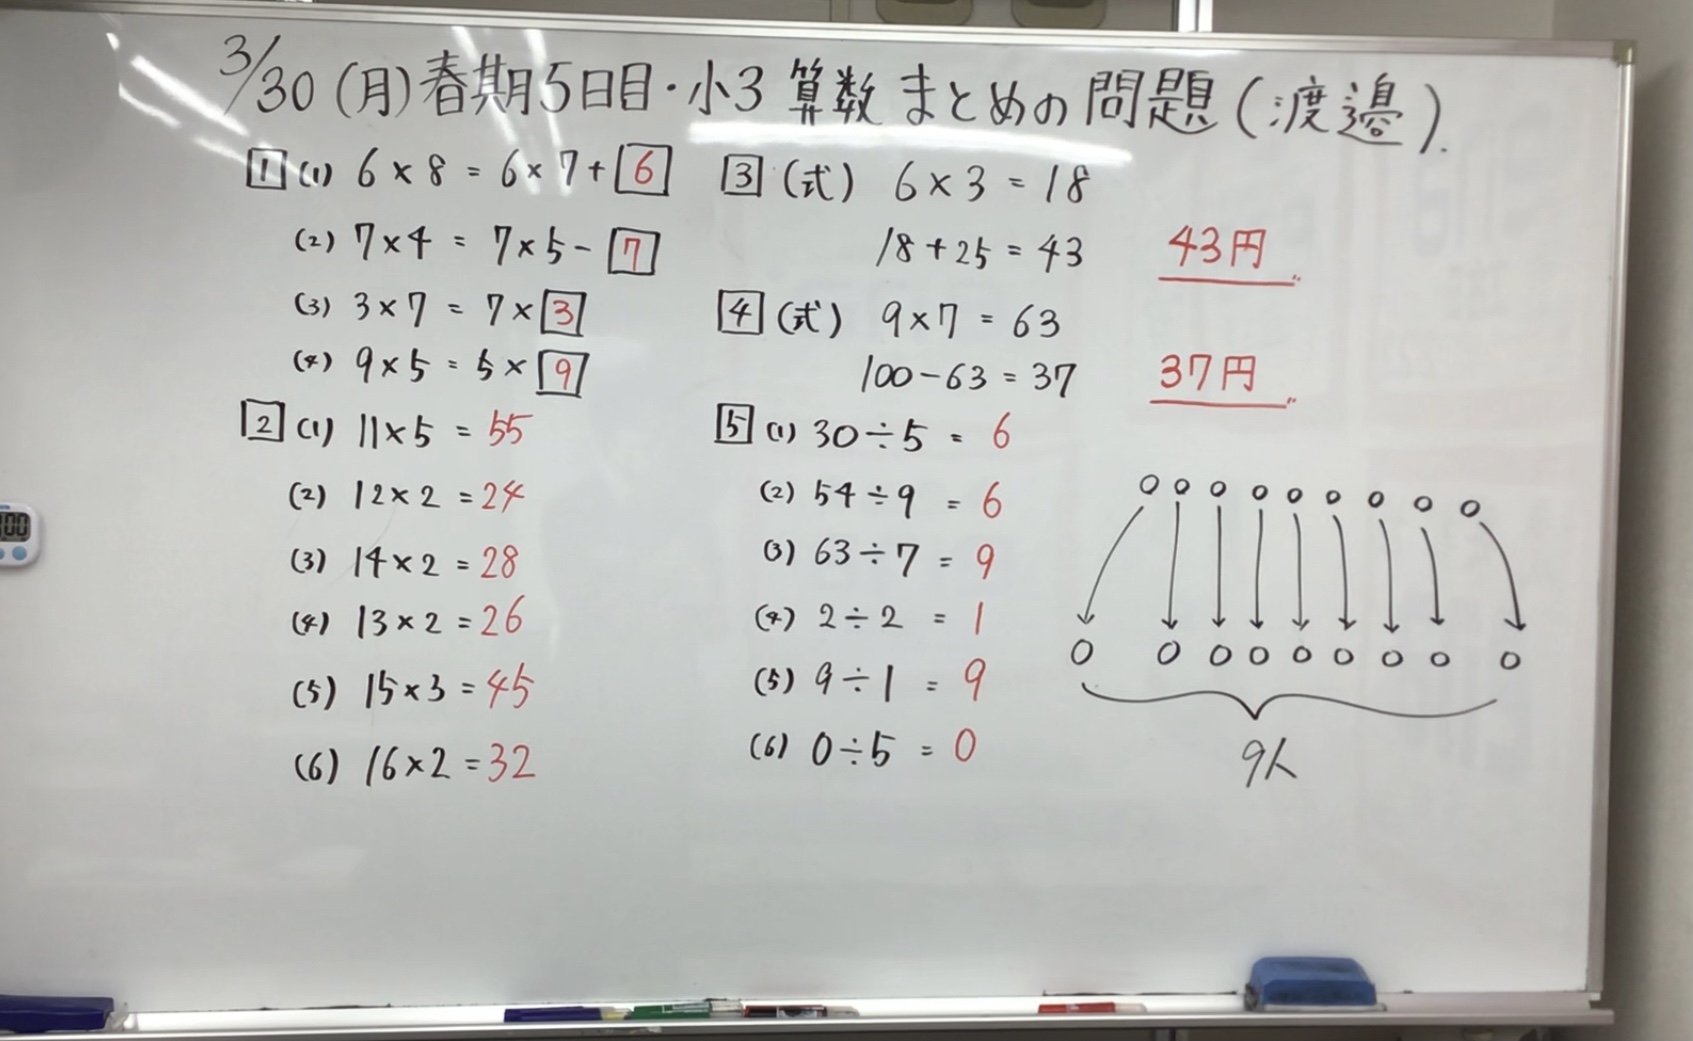 3/30(月)春期5日目・小3 算数 まとめの問題(渡邉).
1 (1) 6×8 = 6×7+6
(2) 7×4 = 7×5-7
(3) 3×7 = 7×3
(4) 9×5 = 5×9
2 (1) 11×5 = 55
(2) 12×2 = 24
(3) 14×2 = 28
(4) 13×2 = 26
(5) 15×3 = 45
(6) 16×2 = 32
3 (式) 6×3 = 18
18+25 = 43 43円
4 (式) 9×7 = 63
100-63 = 37 37円
5 (1) 30÷5 = 6
(2) 54÷9 = 6
(3) 63÷7 = 9
(4) 2÷2 = 1
(5) 9÷1 = 9
(6) 0÷5 = 0
9人